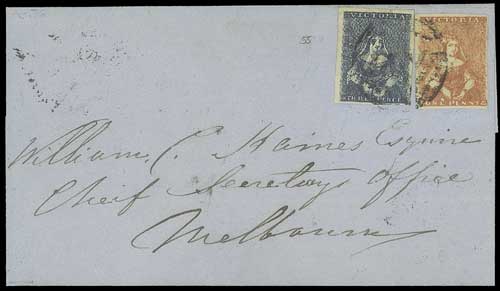 55
VICTORIA
THREE PENCE
VICTORIA
ONE PENNY
William C. Haines Esquire
Cheif Secretarys Office
Melbourne